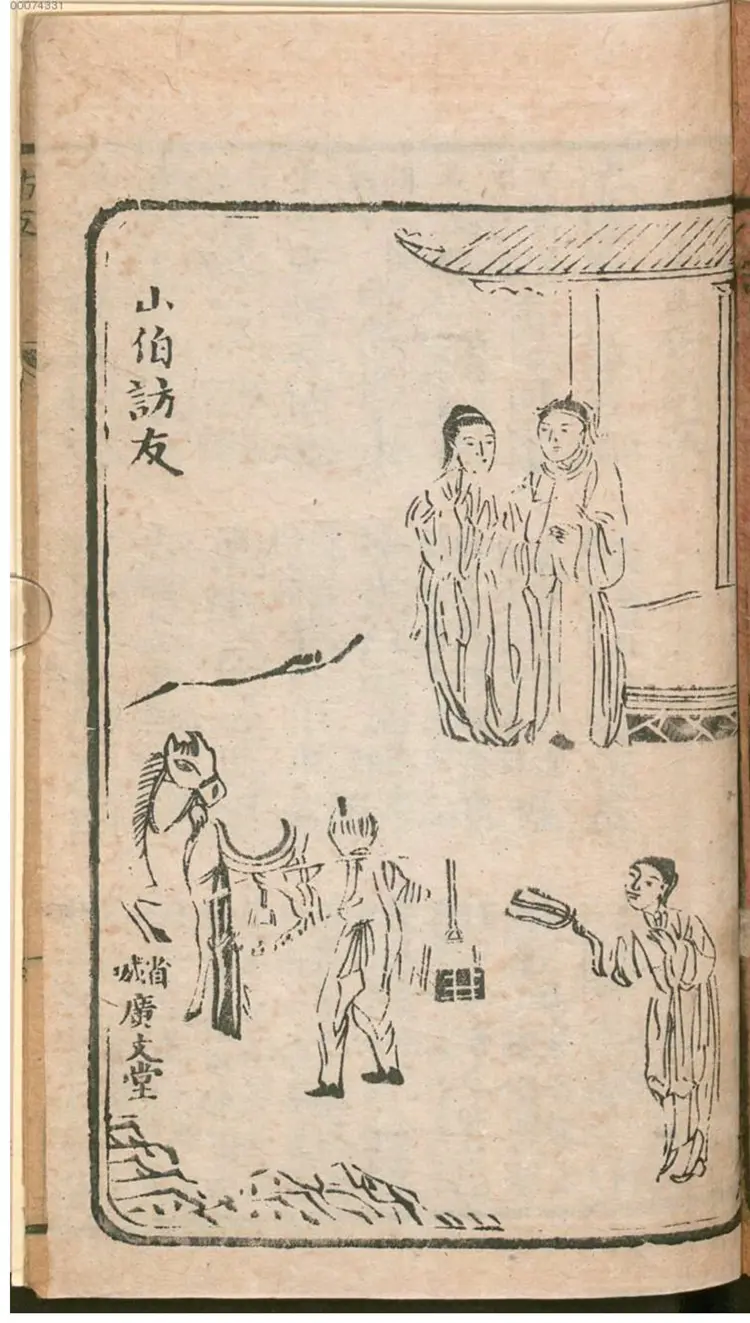 00074331
山伯訪友
省城
廣文堂